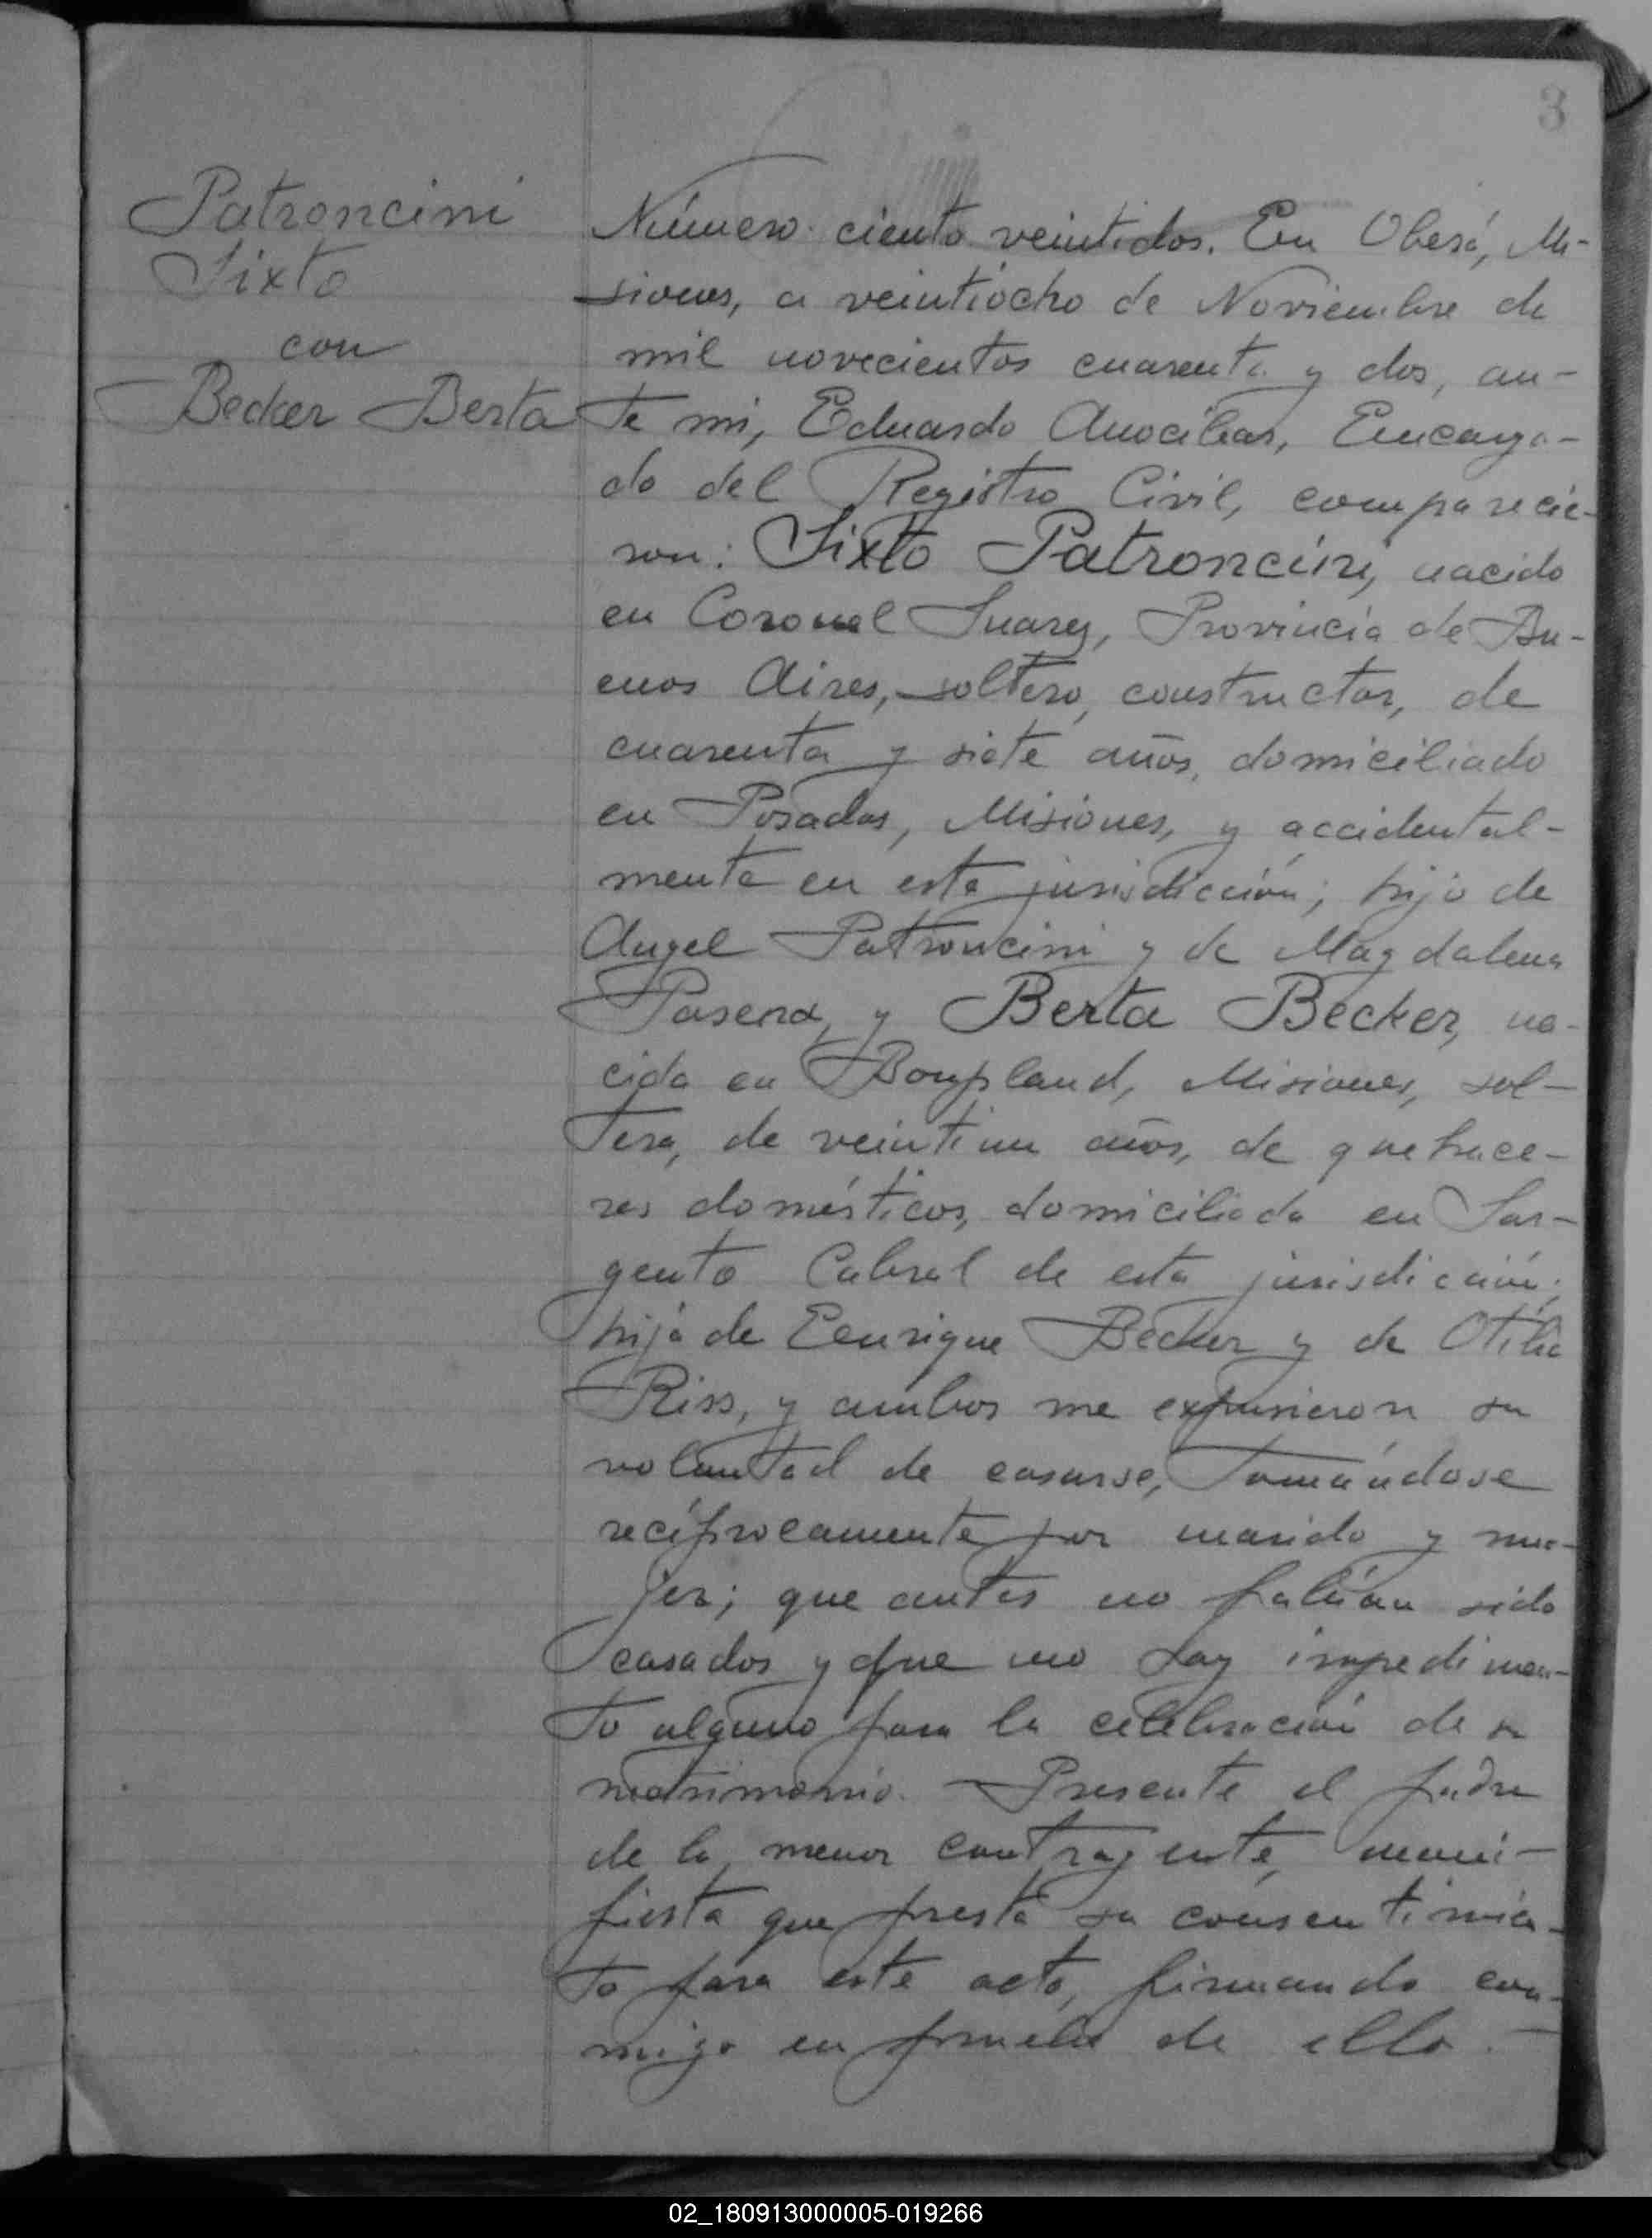 3
Patroncini
Sixto
con
Becker Berta
Número ciento veintidos. En Oberá, Mi-
siones, a veintiocho de Noviembre de
mil novecientos cuarenta y dos, an-
te mi, Eduardo Encarga-
do del Registro Civil, comparecie-
ron: Sixto Patroncini, nacido
en Coronel Suarez, Provincia de Bu-
enos Aires, soltero, constructor, de
cuarenta y siete años, domiciliado
en Posadas, Misiones, y accidental-
mente en esta jurisdicción; hijo de
Angel Patroncini y de Magdalena
y Berta Becker, na-
cida en Bompland, Misiones, sol-
tera, de veintiun años, de quehace-
res domésticos, domiciliada en Sar-
gento Cabral de esta jurisdicción;
hija de Eenrique Becker y de Otilia
Riss, y ambos me expusieron su
voluntad de casarse, tomándose
recíprocamente por marido y mu-
jer; que antes no habían sido
casados y que no hay impedimen-
to alguno para la celebración de su
matrimonio. Presente el padre
de la menor contrayente, mani-
fiesta que presta su consentimien-
to para este acto, firmando con-
migo en prueba de ello.-
02_180913000005-019266